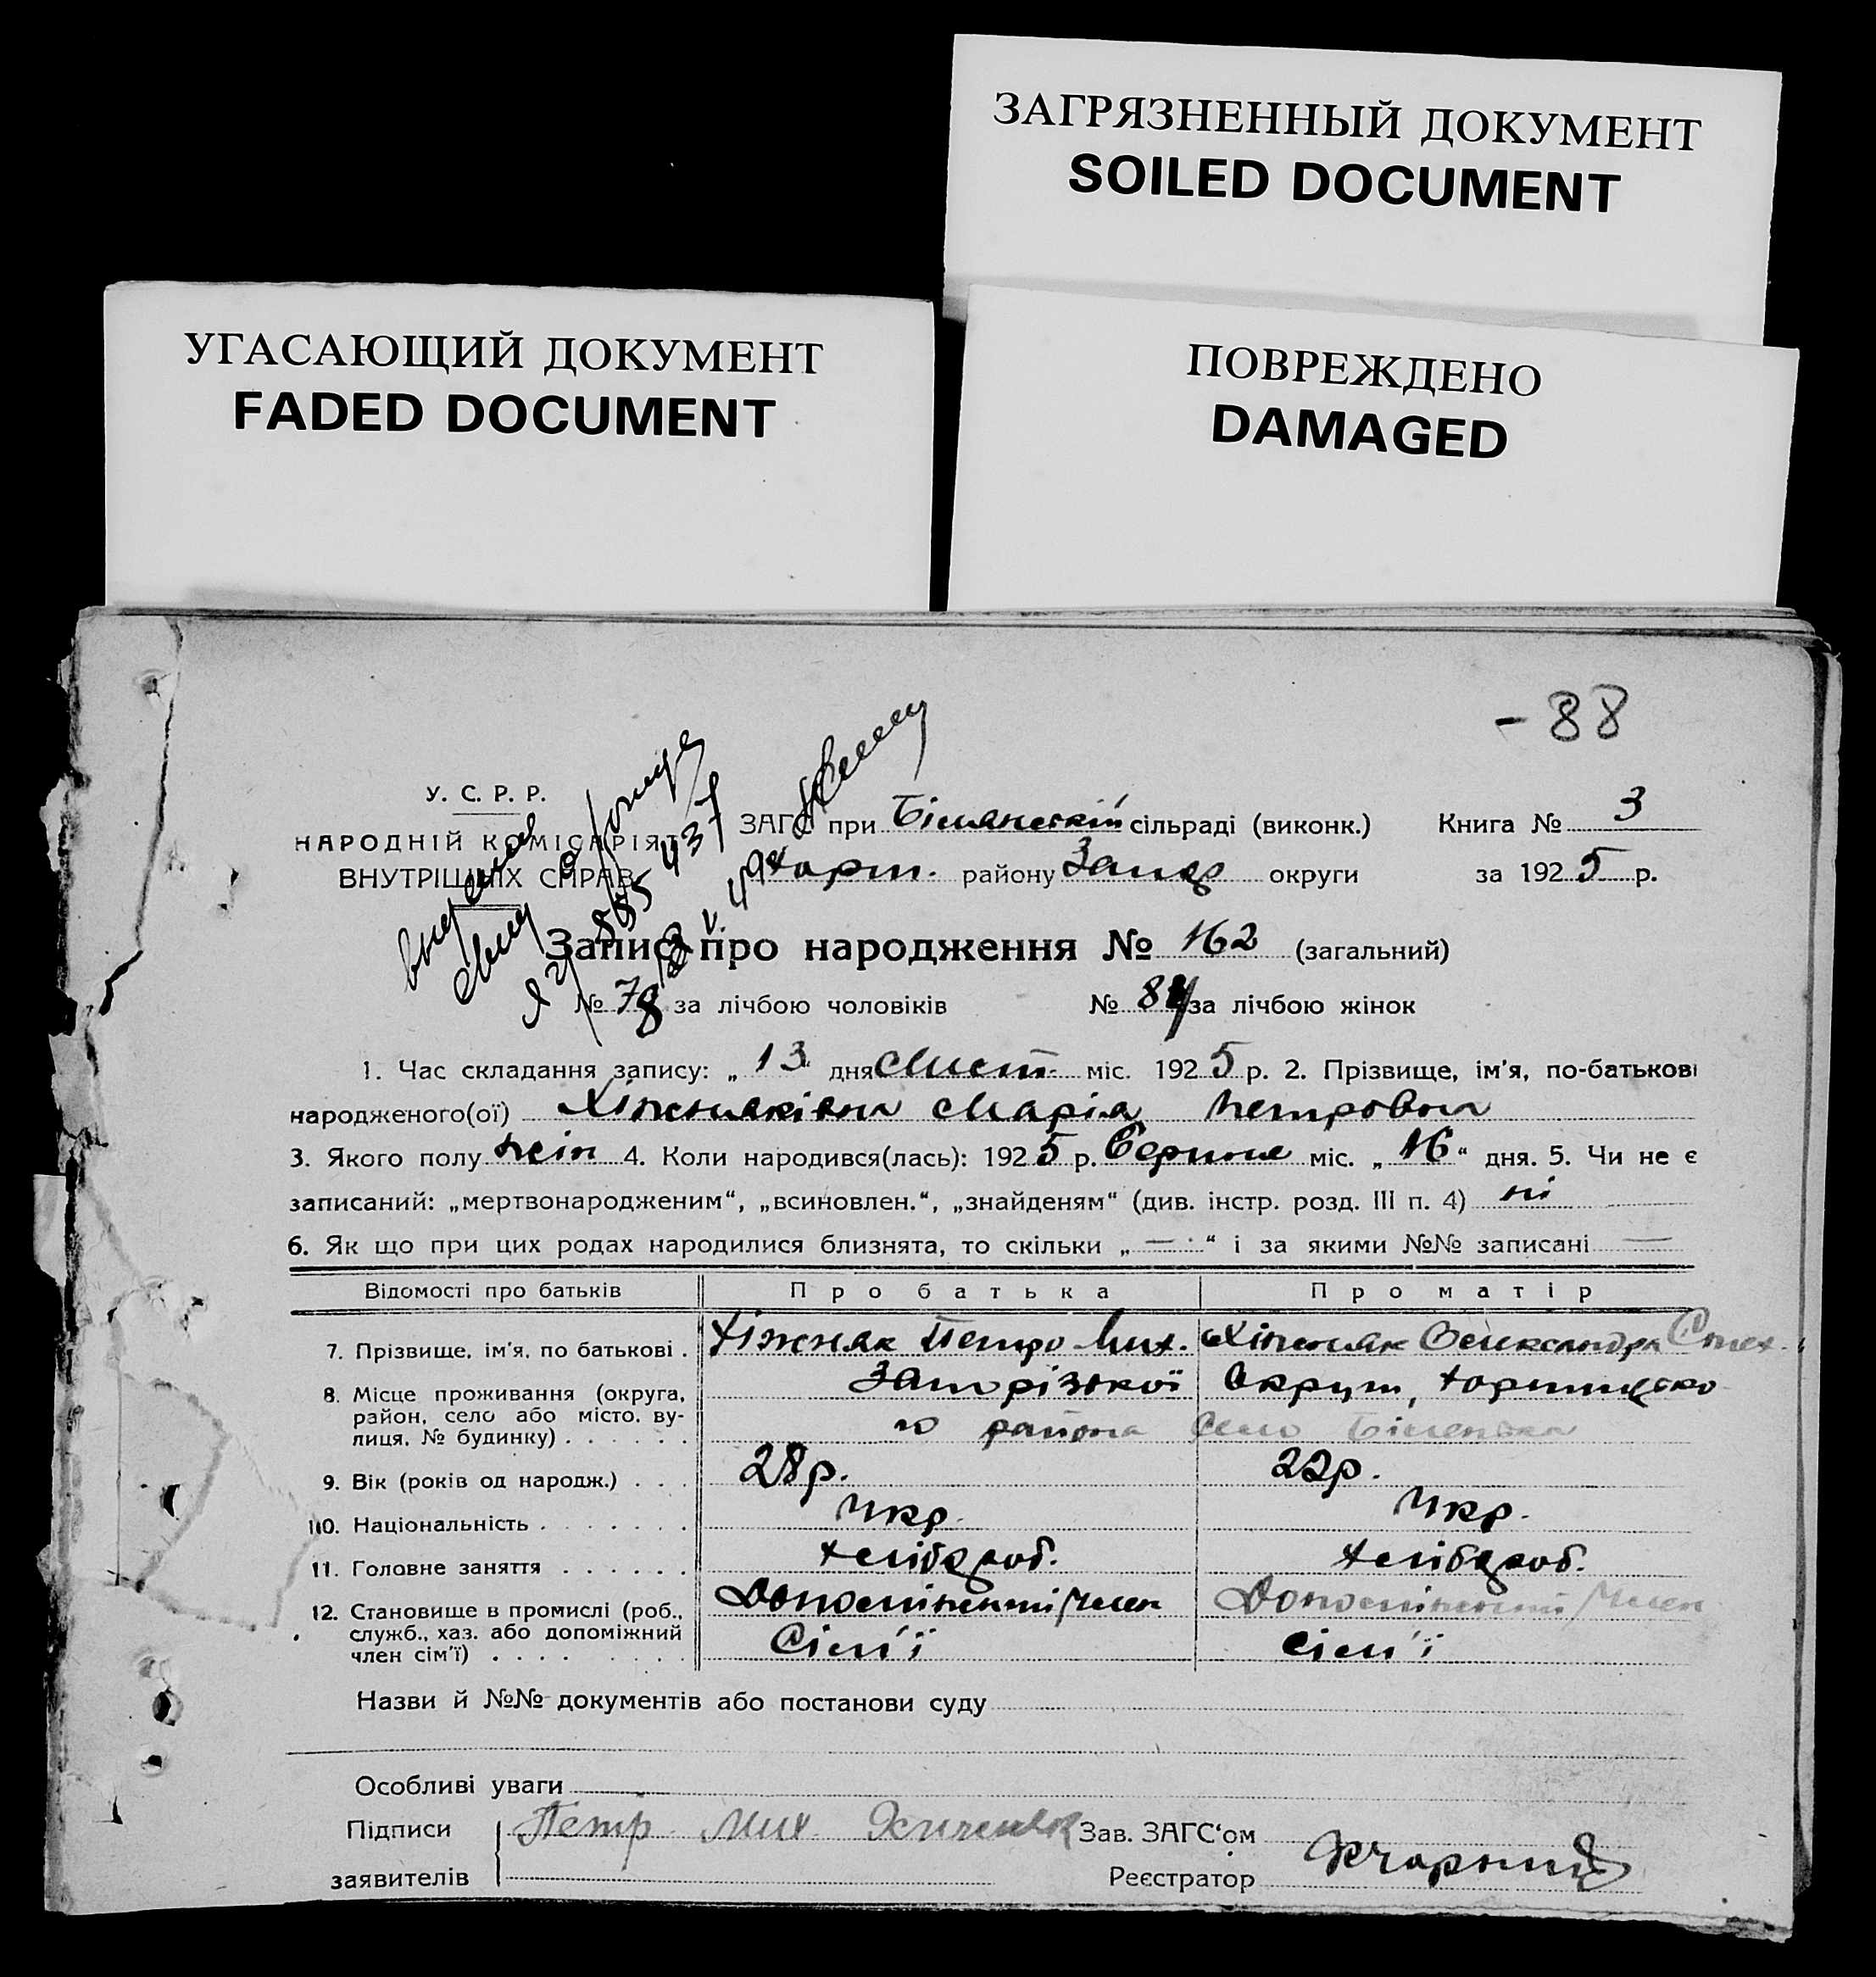 ЗАГРЯЗНЕННЫЙ ДОКУМЕНТ
SOILED DOCUMENT
УГАСАЮЩИЙ ДОКУМЕНТ
FADED DOCUMENT
ПОВРЕЖДЕНО
DAMAGED
- 88
У. С. Р. Р.
НАРОДНІЙ КОМІСАРІЯТ
ВНУТРІШНІХ СПРАВ
ЗАГС при сільраді (виконк.) Книга № 3
Хорт. району Запор округи за 1925 р.
Запис про народження № 162 (загальний)
№ 78 за лічбою чоловіків № 84 за лічбою жінок
1. Час складання запису: „ 13 " дня Лист. міс. 1925 р. 2. Прізвище, ім'я, по-батькові
народженого(ої) Хіжняківна Марія Петровна
3. Якого полу жін 4. Коли народився(лась): 1925 р. Серпня міс. „ 16 " дня. 5. Чи не є
записаний: „мертвонародженим", „всиновлен.", „знайденям" (див. інстр. розд. III п. 4) ні
6. Як що при цих родах народилися близнята, то скільки „ — " і за якими №№ записані —
Відомості про батьків Про батька Про матір
7. Прізвище, ім'я, по батькові . Хіжняк Петро Мих. Хіжняк Олександра
8. Місце проживання (округа, Запорізкої Округи, Хортицко
район, село або місто, ву- го района Село Біленька
лиця, № будинку) . . . . . .
9. Вік (років од народж.) . . . 28р. 22р.
10. Національність . . . . . . . Укр. Укр.
11. Головне заняття . . . . . . хлібороб. хлібороб.
12. Становище в промислі (роб., Допоміжний член Допоміжний член
служб., хаз. або допоміжний Сім'ї сім'ї
член сім'ї) . . . . . . . .
Назви й №№ документів або постанови суду
Особливі уваги
Підписи Петр Мих Зав. ЗАГС'ом
заявителів Реєстратор